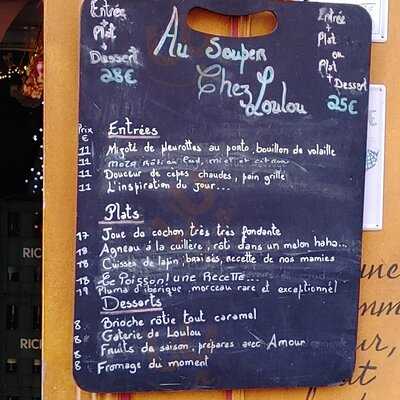 Au Souper
Chez Loulou
Entrée
+
Plat
+
Dessert
28€
Entrée
+
Plat
ou
Plat
+
Dessert
25€
Prix
€
Entrées
11 Mijoté de pleurottes au porto, bouillon de volaille
11 miel et citron
11 Douceur de cèpes chaudes, pain grillé
11 L'inspiration du jour...
Plats
17 Joue de cochon très très fondante
18 Agneau à la cuillère, rôti dans un melon haha...
18 Cuisses de lapin, braisés, recette de nos mamies
18 Le Poisson! une Recette...
19 Pluma d'ibérique, morceau rare et exceptionnel
Desserts
8 Brioche rôtie tout caramel
8 Gaterie de Loulou
8 Fruits de saison, préparés avec Amour
8 Fromage du moment
RIC
RIC